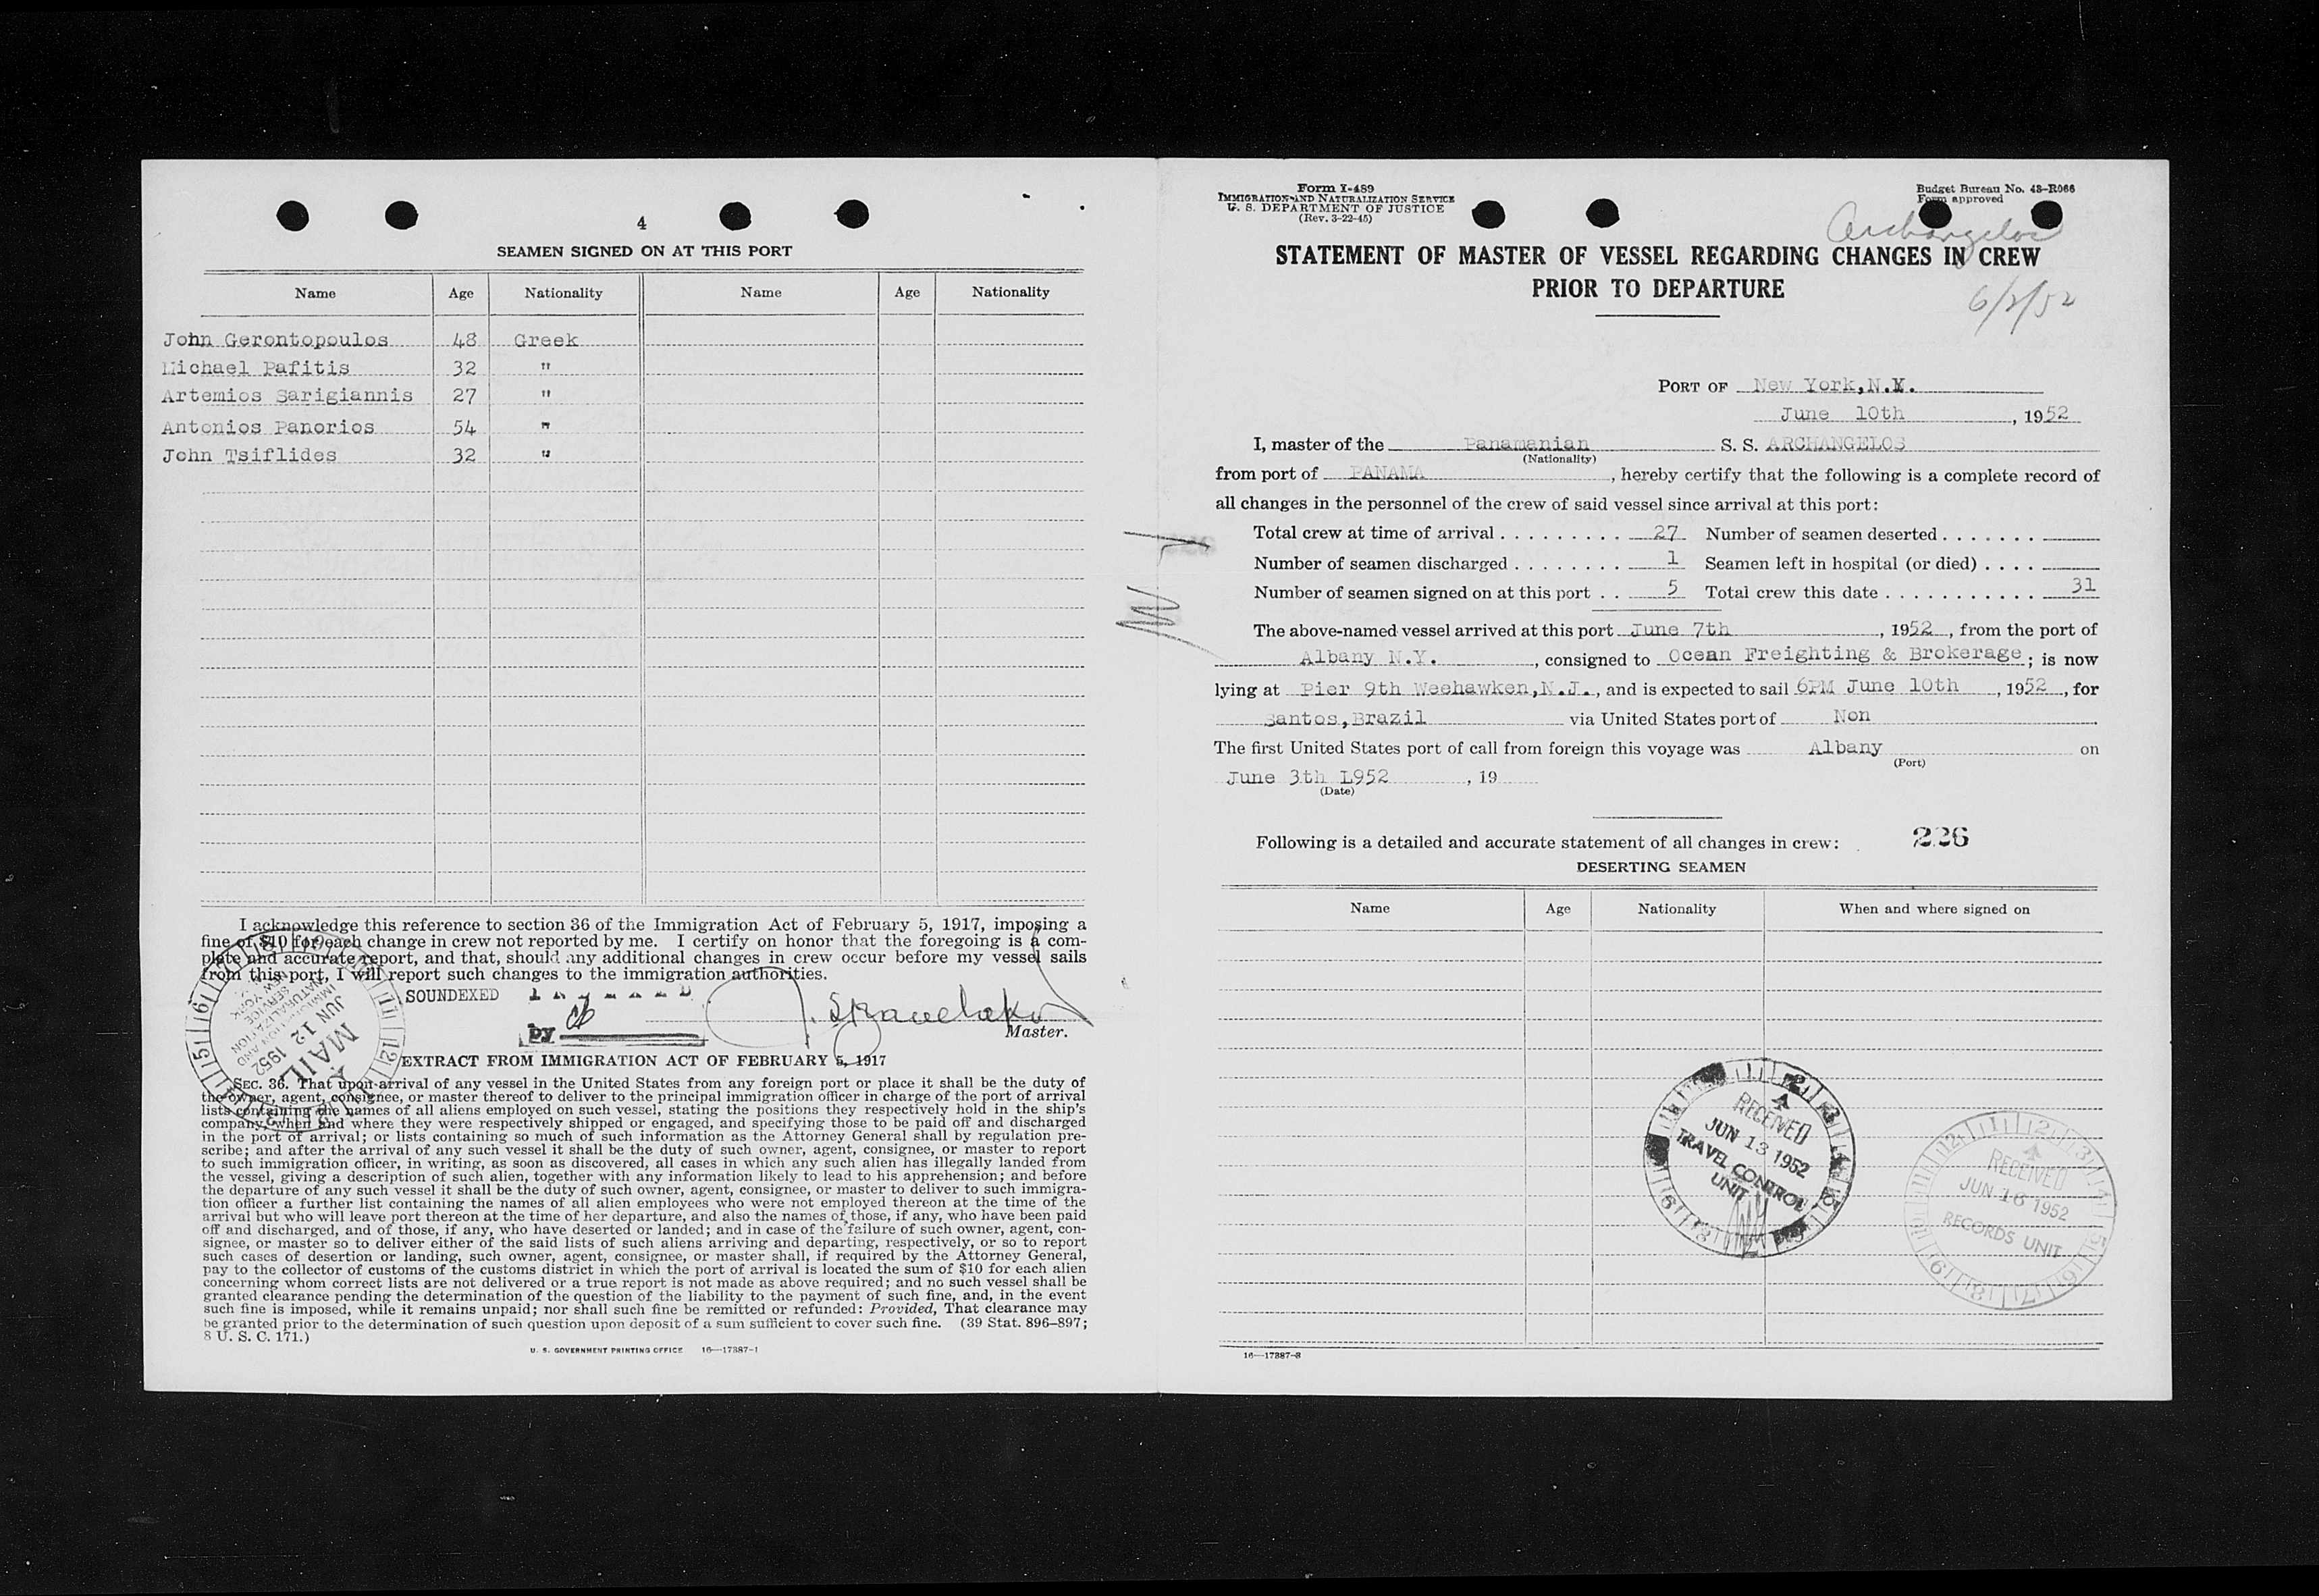 4
SEAMEN SIGNED ON AT THIS PORT
Name Age Nationality Name Age Nationality
John Gerontopoulos 48 Greek
Michael Pafitis 32 "
Artemios Sarigiannis 27 "
Antonios Panorios 54 "
John Tsiflides 32 "
I acknowledge this reference to section 36 of the Immigration Act of February 5, 1917, imposing a
fine of $10 for each change in crew not reported by me. I certify on honor that the foregoing is a com-
plete and accurate report, and that, should any additional changes in crew occur before my vessel sails
from this port, I will report such changes to the immigration authorities.
SOUNDEXED
by
Master.
IMMIGRATION AND
NATURALIZATION
SERVICE
NEW YORK
JUN 12 1952
MAIL
EXTRACT FROM IMMIGRATION ACT OF FEBRUARY 5, 1917
SEC. 36. That upon arrival of any vessel in the United States from any foreign port or place it shall be the duty of
the owner, agent, consignee, or master thereof to deliver to the principal immigration officer in charge of the port of arrival
lists containing the names of all aliens employed on such vessel, stating the positions they respectively hold in the ship's
company, when and where they were respectively shipped or engaged, and specifying those to be paid off and discharged
in the port of arrival; or lists containing so much of such information as the Attorney General shall by regulation pre-
scribe; and after the arrival of any such vessel it shall be the duty of such owner, agent, consignee, or master to report
to such immigration officer, in writing, as soon as discovered, all cases in which any such alien has illegally landed from
the vessel, giving a description of such alien, together with any information likely to lead to his apprehension; and before
the departure of any such vessel it shall be the duty of such owner, agent, consignee, or master to deliver to such immigra-
tion officer a further list containing the names of all alien employees who were not employed thereon at the time of the
arrival but who will leave port thereon at the time of her departure, and also the names of those, if any, who have been paid
off and discharged, and of those, if any, who have deserted or landed; and in case of the failure of such owner, agent, con-
signee, or master so to deliver either of the said lists of such aliens arriving and departing, respectively, or so to report
such cases of desertion or landing, such owner, agent, consignee, or master shall, if required by the Attorney General,
pay to the collector of customs of the customs district in which the port of arrival is located the sum of $10 for each alien
concerning whom correct lists are not delivered or a true report is not made as above required; and no such vessel shall be
granted clearance pending the determination of the question of the liability to the payment of such fine, and, in the event
such fine is imposed, while it remains unpaid; nor shall such fine be remitted or refunded: Provided, That clearance may
be granted prior to the determination of such question upon deposit of a sum sufficient to cover such fine. (39 Stat. 896–897;
8 U. S. C. 171.)
U. S. GOVERNMENT PRINTING OFFICE 16—17387-1
Form I-489
IMMIGRATION AND NATURALIZATION SERVICE
U. S. DEPARTMENT OF JUSTICE
(Rev. 3-22-45)
Budget Bureau No. 43-R066
Form approved
Archangelos
STATEMENT OF MASTER OF VESSEL REGARDING CHANGES IN CREW
PRIOR TO DEPARTURE
6/2/52
PORT OF New York, N.Y.
June 10th, 1952
I, master of the Panamanian S. S. ARCHANGELOS
(Nationality)
from port of PANAMA, hereby certify that the following is a complete record of
all changes in the personnel of the crew of said vessel since arrival at this port:
Total crew at time of arrival . . . . . . . . . 27 Number of seamen deserted . . . . . . .
Number of seamen discharged . . . . . . . . 1 Seamen left in hospital (or died) . . . .
Number of seamen signed on at this port . . 5 Total crew this date . . . . . . . . . . . 31
The above-named vessel arrived at this port June 7th, 1952, from the port of
Albany N.Y., consigned to Ocean Freighting & Brokerage; is now
lying at Pier 9th Weehawken, N.J., and is expected to sail 6PM June 10th, 1952, for
Santos, Brazil via United States port of Non
The first United States port of call from foreign this voyage was Albany on
(Port)
June 3th 1952, 19
(Date)
Following is a detailed and accurate statement of all changes in crew: 226
DESERTING SEAMEN
Name Age Nationality When and where signed on
RECEIVED
JUN 13 1952
TRAVEL CONTROL
UNIT
RECEIVED
JUN 16 1952
RECORDS UNIT
16—17387-3